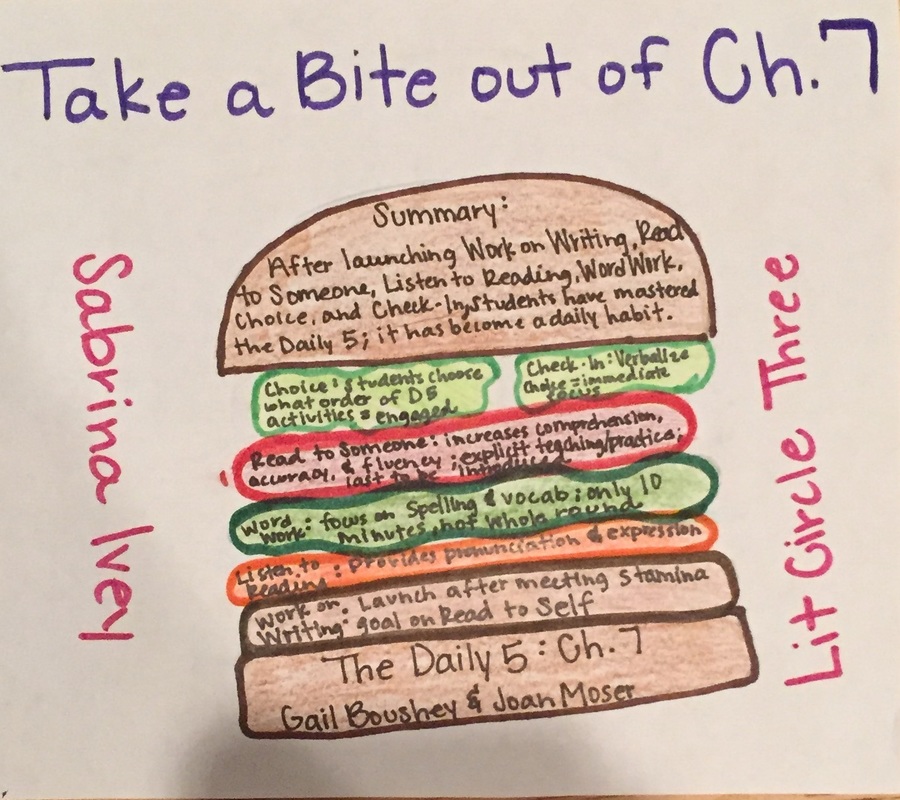 Take a Bite out of Ch. 7
Sabrina Ivey
Summary:
After launching Work on Writing, Read
to Someone, Listen to Reading, Word Work,
Choice, and Check-In, students have mastered
the Daily 5; it has become a daily habit.
Choice: Students choose
what order of D5
activities = engaged
Check-In: Verbalize
choice = immediate
focus
Read to Someone: increases comprehension,
accuracy, & fluency; explicit teaching/practice;
last to be introduced
Word
Work: focus on Spelling & vocab; only 10
minutes, not whole round
Listen to
Reading: Provides pronunciation & expression
Work on
Writing: Launch after meeting stamina
goal on Read to Self
The Daily 5: Ch. 7
Gail Boushey & Joan Moser
Lit Circle Three